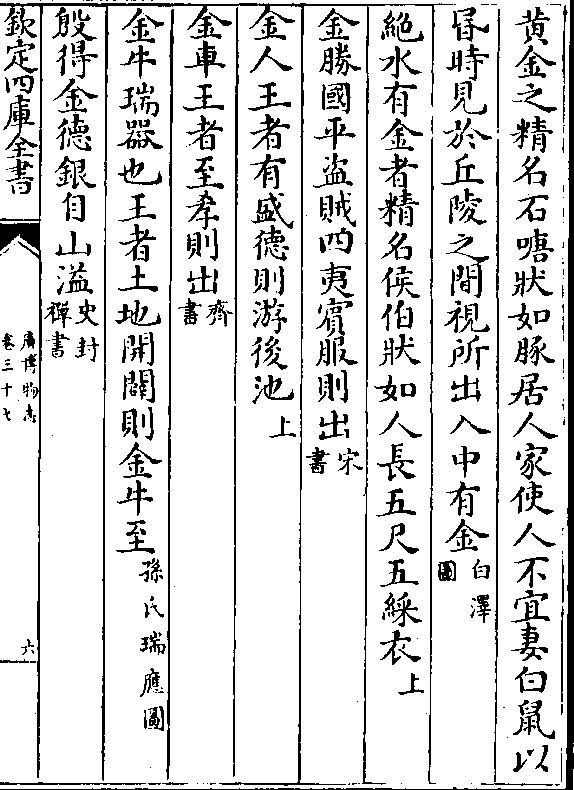 黄金之精名石嗜狀如豚居人家使人不宜妻白鼠以
昏時見於丘陵之間視所出入中有金白澤圖
絶水有金者精名侯伯狀如人長五尺五綵衣上
金勝國平盜賊四夷賓服則出宋書
金人王者有盛德則游後池上
金車王者至孝則出齊書
金牛瑞器也王者土地開闢則金牛至孫氏瑞應圖
殷得金德銀自山溢史封禪書
欽定四庫全書
廣博物志
卷三十七
六